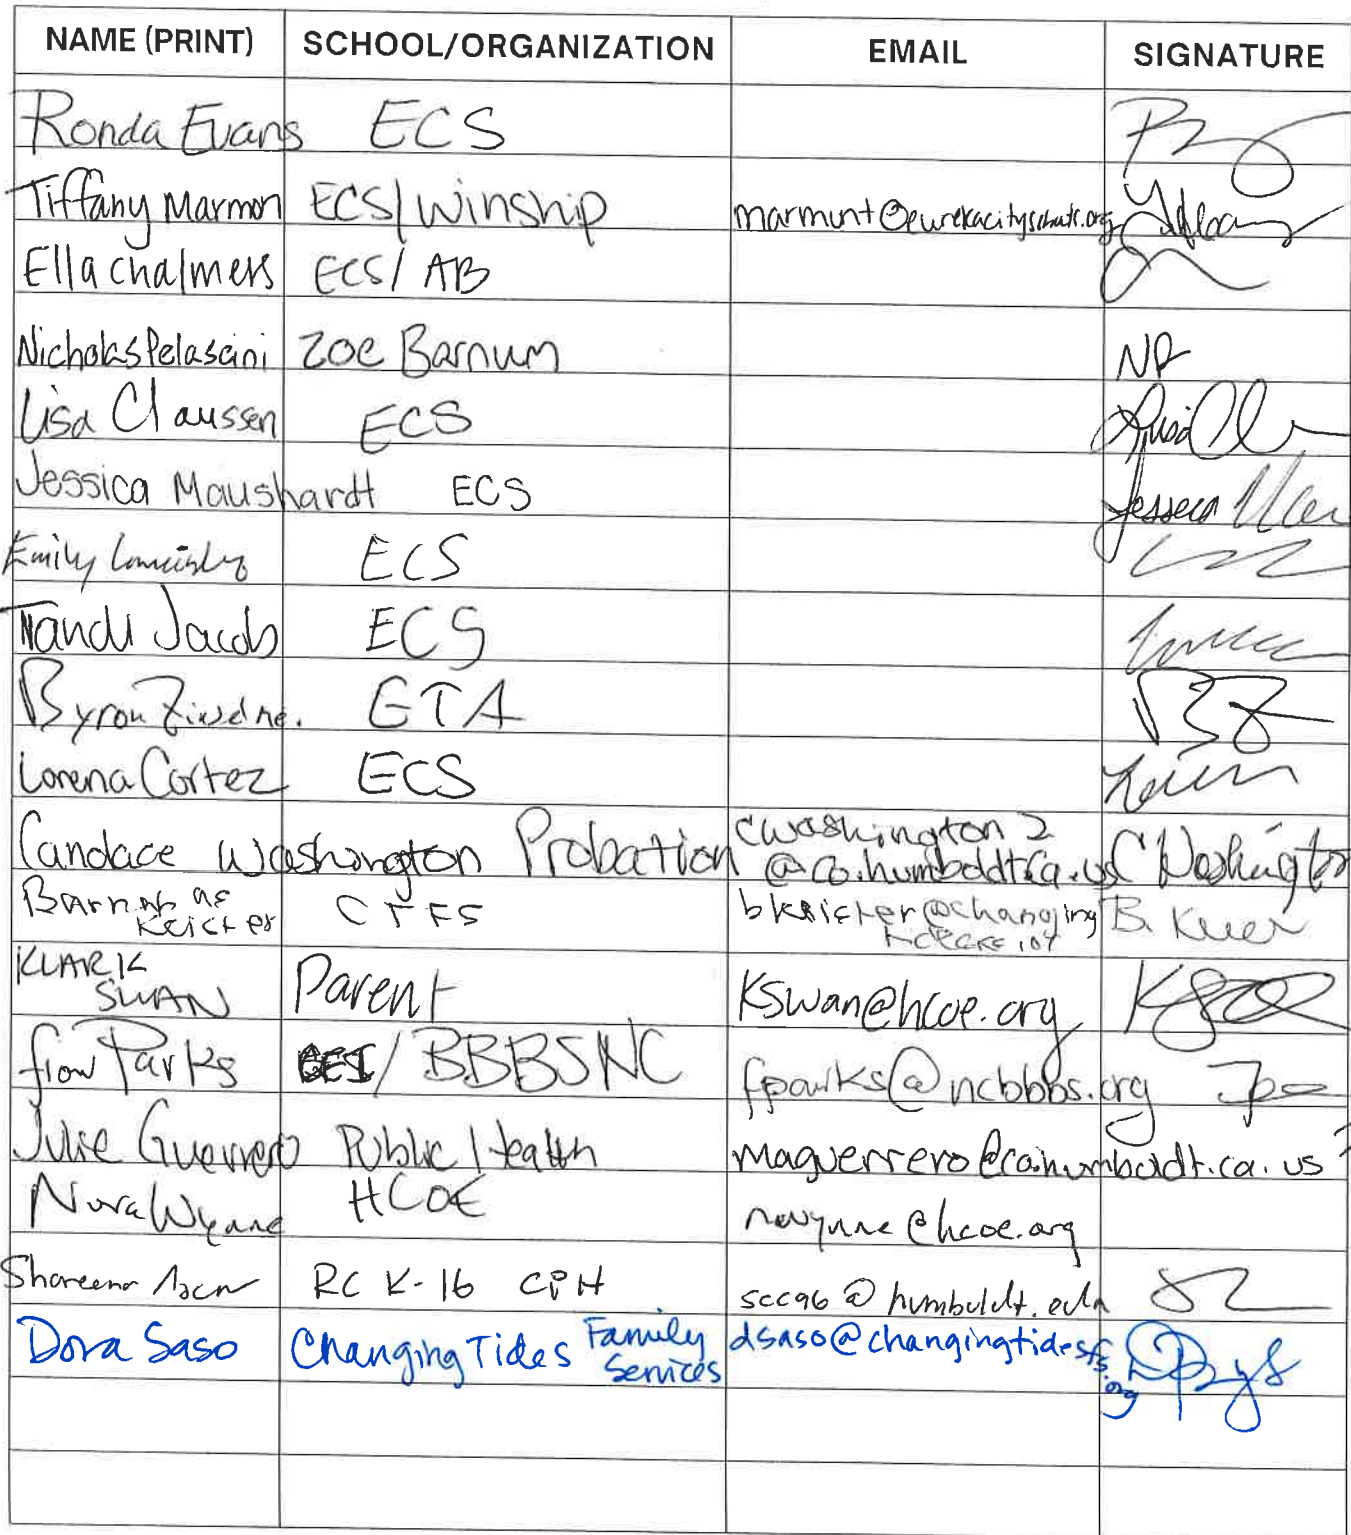 NAME (PRINT) SCHOOL/ORGANIZATION EMAIL SIGNATURE
Ronda Evans ECS
Tiffany Marmon ECS/Winship marmont@eurekacityschools.org
Ella Chalmers ECS/ AB
Nicholas Pelascini Zoe Barnum NP
Lisa Claussen ECS Lisa
Jessica Maushardt ECS Jessica
Emily ECS
Tandi Jacobs ECS
Byron ETA BZ
Lorena Cortez ECS
Candace Washington Probation cwashington2
@co.humboldt.ca.us C Washington
Barnabas CTFS bkeister@changing B.
Keister
KLARK Parent Kswan@hcoe.org
SWAN
fion Parks / BBBSNC fparks@ncbbbs.org
Julie Guerrero Public Health maguerrero@co.humboldt.ca.us
Nora Wynne HCOE nwynne@hcoe.org
Shareena RC K-16 CPH scc96@humboldt.edu
Dora Saso Changing Tides Family dsaso@changingtidesfs.org
Services